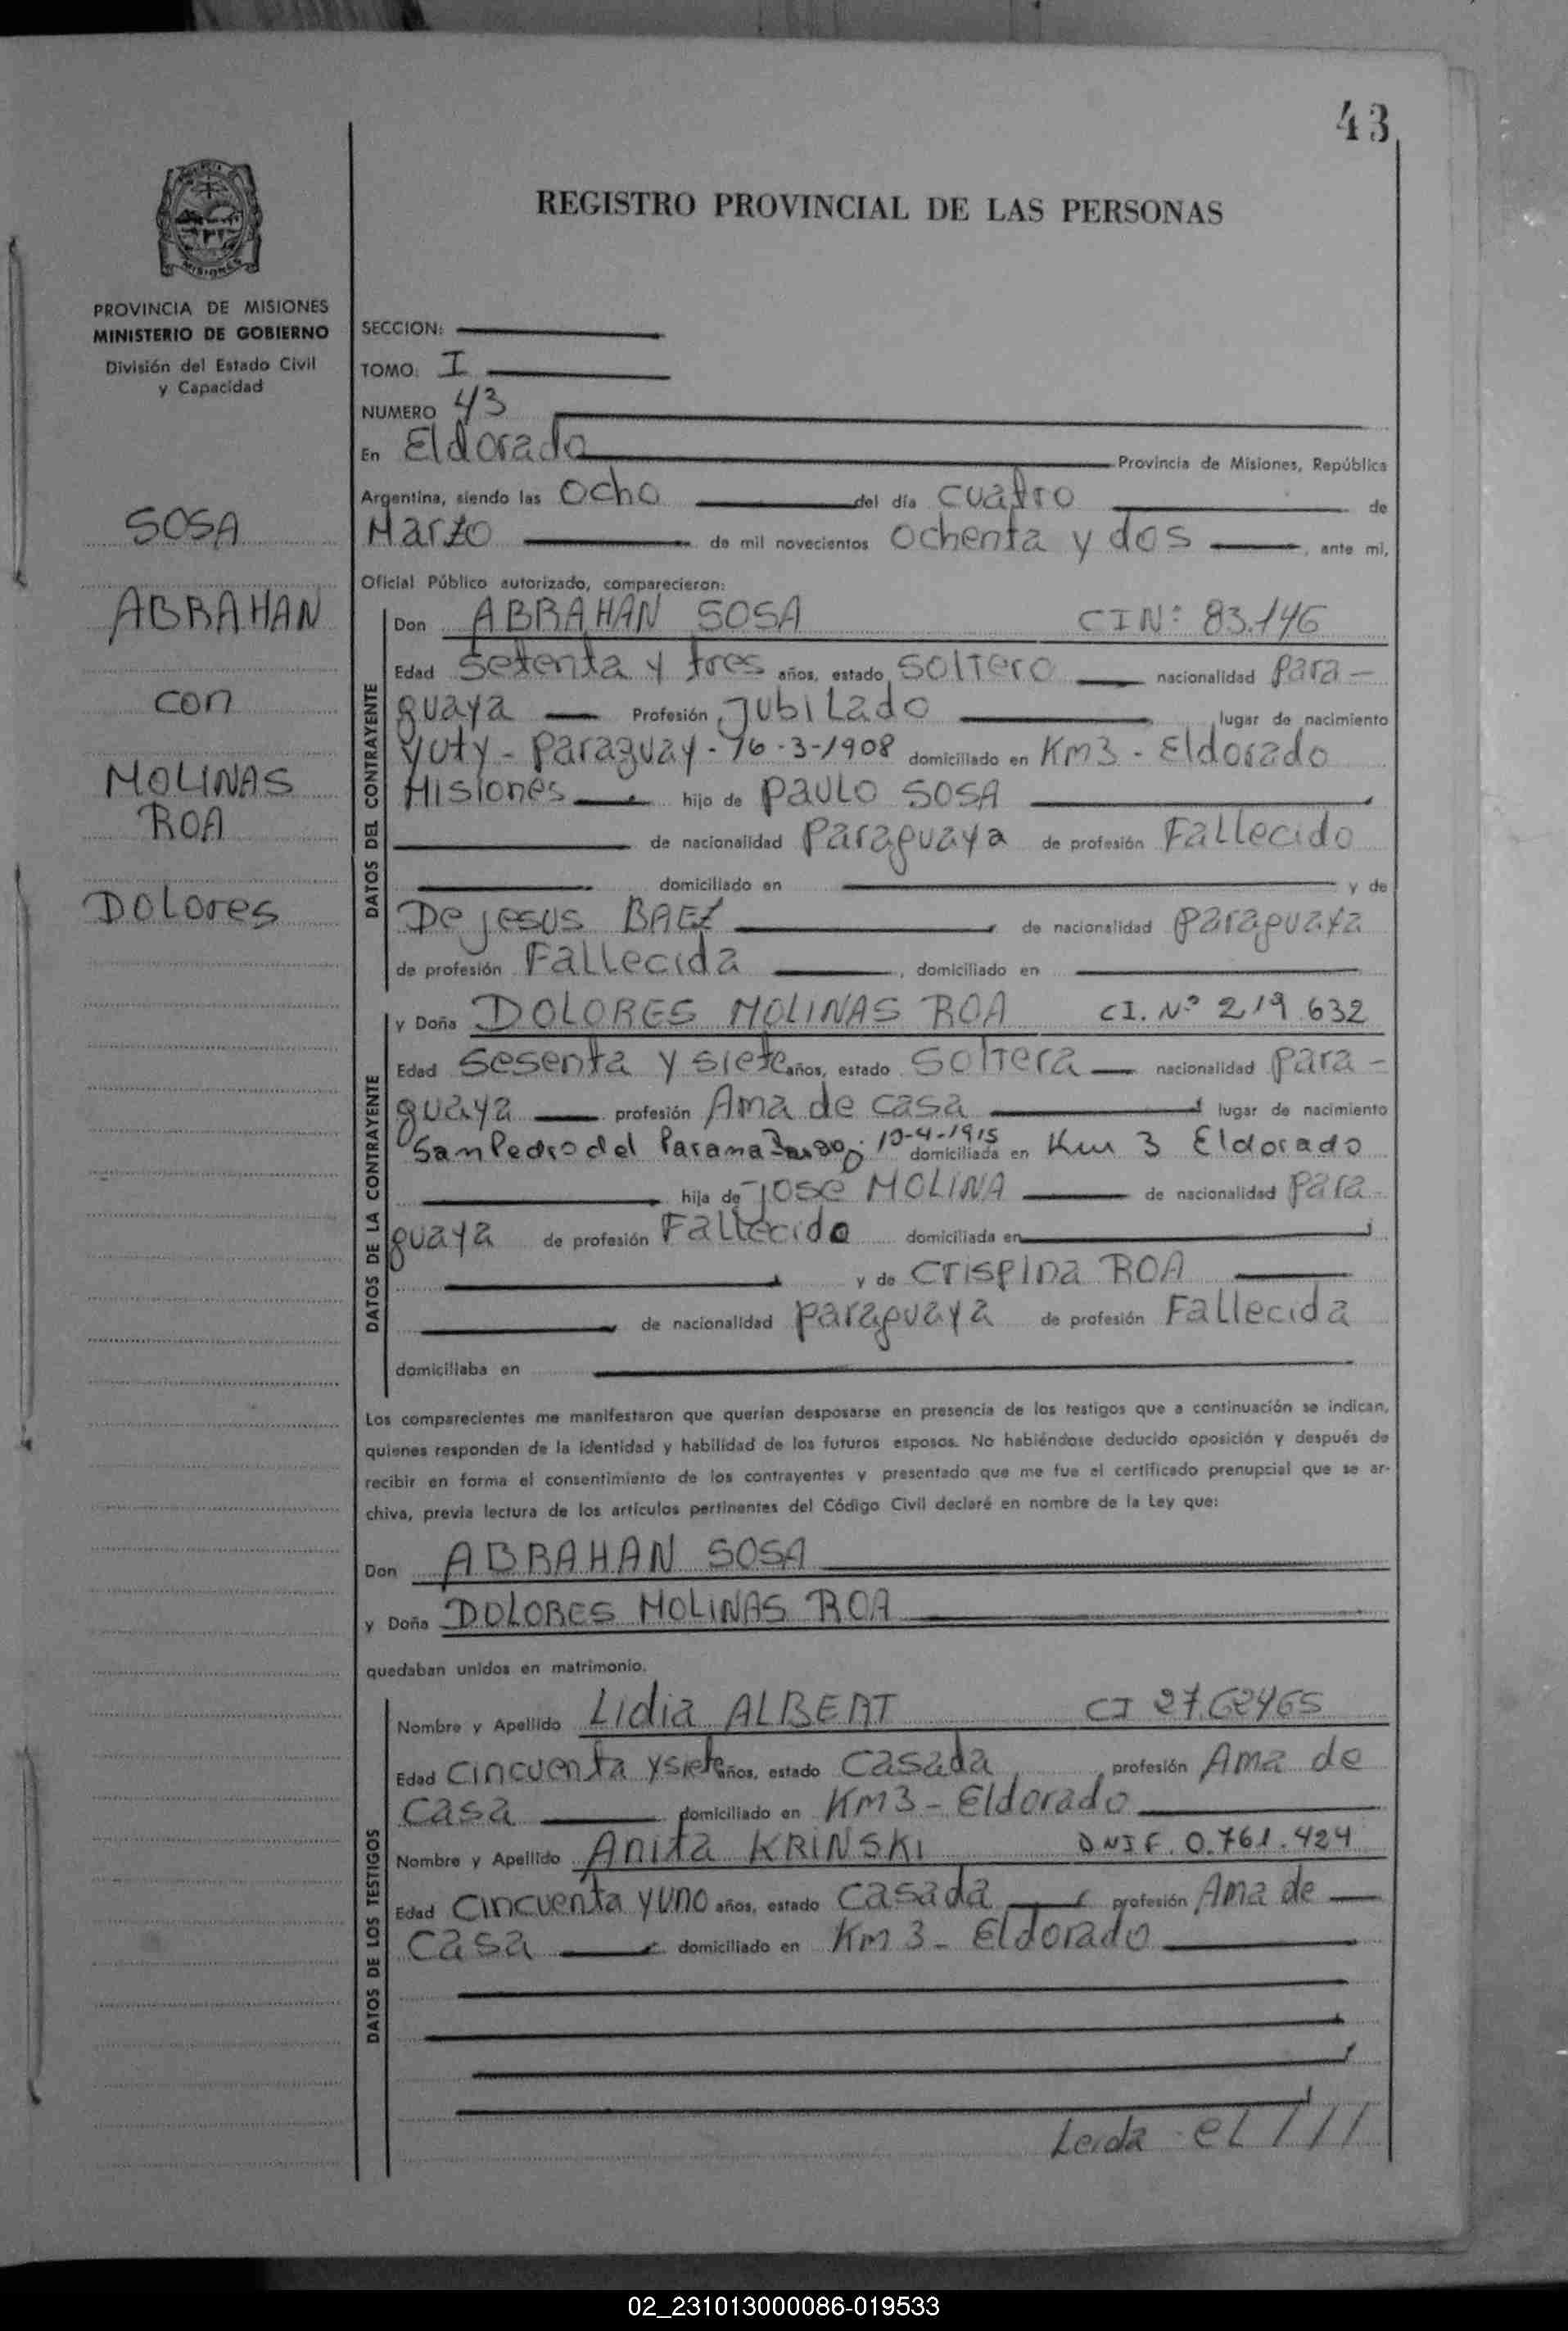 43
REGISTRO PROVINCIAL DE LAS PERSONAS
MISIONES
PROVINCIA DE MISIONES
MINISTERIO DE GOBIERNO
División del Estado Civil
y Capacidad
SOSA
ABRAHAN
con
MOLINAS
ROA
Dolores
SECCION:
TOMO: I
NUMERO 43
En Eldorado Provincia de Misiones, República
Argentina, siendo las ocho del día cuatro de
Marzo de mil novecientos ochenta y dos, ante mi,
Oficial Público autorizado, comparecieron:
DATOS DEL CONTRAYENTE
Don ABRAHAN SOSA CIN: 83.146
Edad setenta y tres años, estado soltero nacionalidad para-
guaya Profesión Jubilado, lugar de nacimiento
Yuty - Paraguay - 16-3-1908 domiciliado en Km3 - Eldorado
Misiones hijo de PAULO SOSA
de nacionalidad Paraguaya de profesión Fallecido
domiciliado en y de
De Jesus BAEZ de nacionalidad paraguaya
de profesión Fallecida, domiciliado en
DATOS DE LA CONTRAYENTE
y Doña DOLORES MOLINAS ROA CI. Nº 219.632
Edad sesenta y siete años, estado soltera nacionalidad para-
guaya profesión Ama de casa lugar de nacimiento
San Pedro del Parana 10-4-1915 domiciliada en Km 3 Eldorado
hija de Jose MOLINA de nacionalidad para
guaya de profesión Fallecido domiciliada en
y de Crispina ROA
de nacionalidad paraguaya de profesión Fallecida
domiciliaba en
Los comparecientes me manifestaron que querían desposarse en presencia de los testigos que a continuación se indican,
quienes responden de la identidad y habilidad de los futuros esposos. No habiéndose deducido oposición y después de
recibir en forma el consentimiento de los contrayentes y presentado que me fue el certificado prenupcial que se ar-
chiva, previa lectura de los artículos pertinentes del Código Civil declaré en nombre de la Ley que:
Don ABRAHAN SOSA
y Doña DOLORES MOLINAS ROA
quedaban unidos en matrimonio.
DATOS DE LOS TESTIGOS
Nombre y Apellido Lidia ALBERT CI 27.62465
Edad cincuenta y siete años, estado casada, profesión Ama de
casa domiciliado en Km3 - Eldorado
Nombre y Apellido Anita KRINSKI DNI F. 0.761.424
Edad cincuenta y uno años, estado casada profesión Ama de
casa domiciliado en Km 3 - Eldorado
Leida el ///
02_231013000086-019533